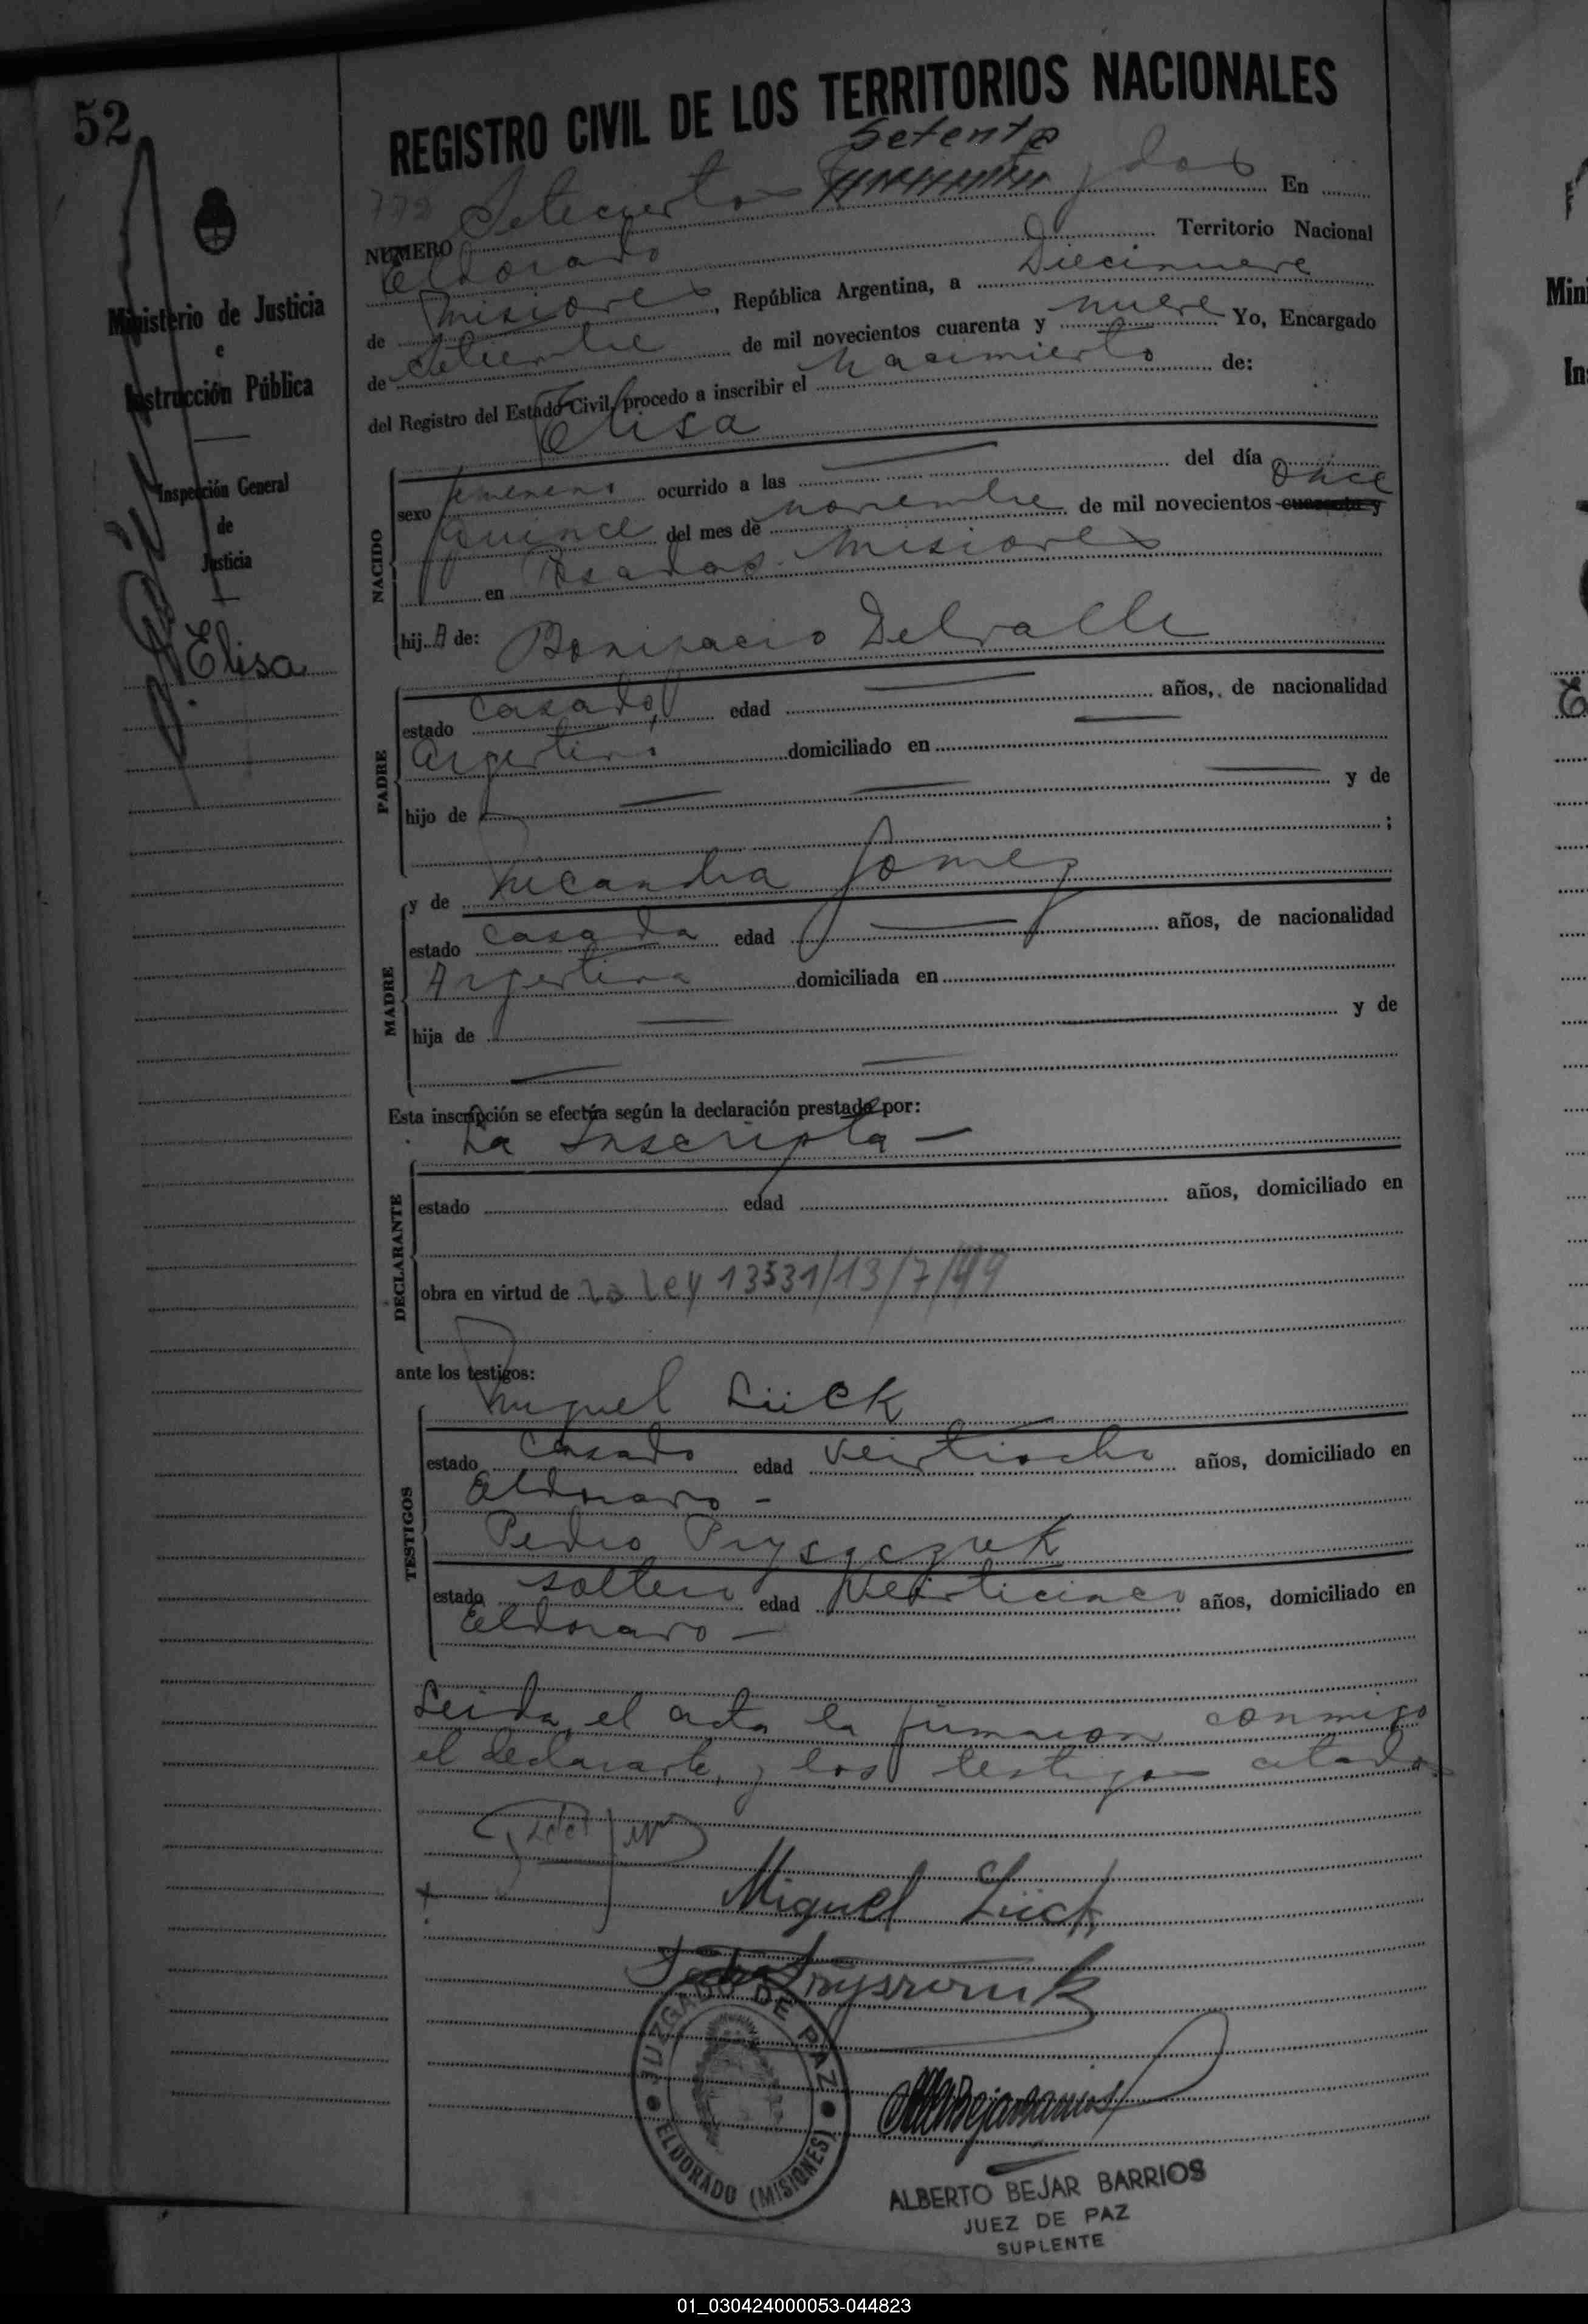 52
REGISTRO CIVIL DE LOS TERRITORIOS NACIONALES
Setenta
772
NUMERO Setecientos y dos En
Eldorado Territorio Nacional
de Misiones, República Argentina, a Diecinueve
de Setiembre de mil novecientos cuarenta y nueve Yo, Encargado
del Registro del Estado Civil, procedo a inscribir el nacimiento de:
Elisa
Ministerio de Justicia
e
Instrucción Pública
Inspección General
de
Justicia
Elisa
NACIDO
sexo femenino ocurrido a las del día
quince del mes de noviembre de mil novecientos cuarenta y once
en Posadas Misiones
hij A de: Bonifacio Delvalle
PADRE
estado casado edad años, de nacionalidad
Argentino domiciliado en
hijo de y de
;
y de Nicandra Gomez
MADRE
estado casada edad años, de nacionalidad
Argentina domiciliada en
hija de y de
Esta inscripción se efectúa según la declaración prestada por:
La Inscripta
DECLARANTE
estado edad años, domiciliado en
obra en virtud de La Ley 13531/13/7/49
ante los testigos:
Miguel Lück
TESTIGOS
estado casado edad veintiocho años, domiciliado en
Eldorado
Pedro
estado soltero edad Veinticinco años, domiciliado en
Eldorado
Leida el acta la firmaron conmigo
el declarante, y los testigos citados
Miguel Lück
JUZGADO DE PAZ
ELDORADO (MISIONES)
ALBERTO BEJAR BARRIOS
JUEZ DE PAZ
SUPLENTE
01_030424000053-044823